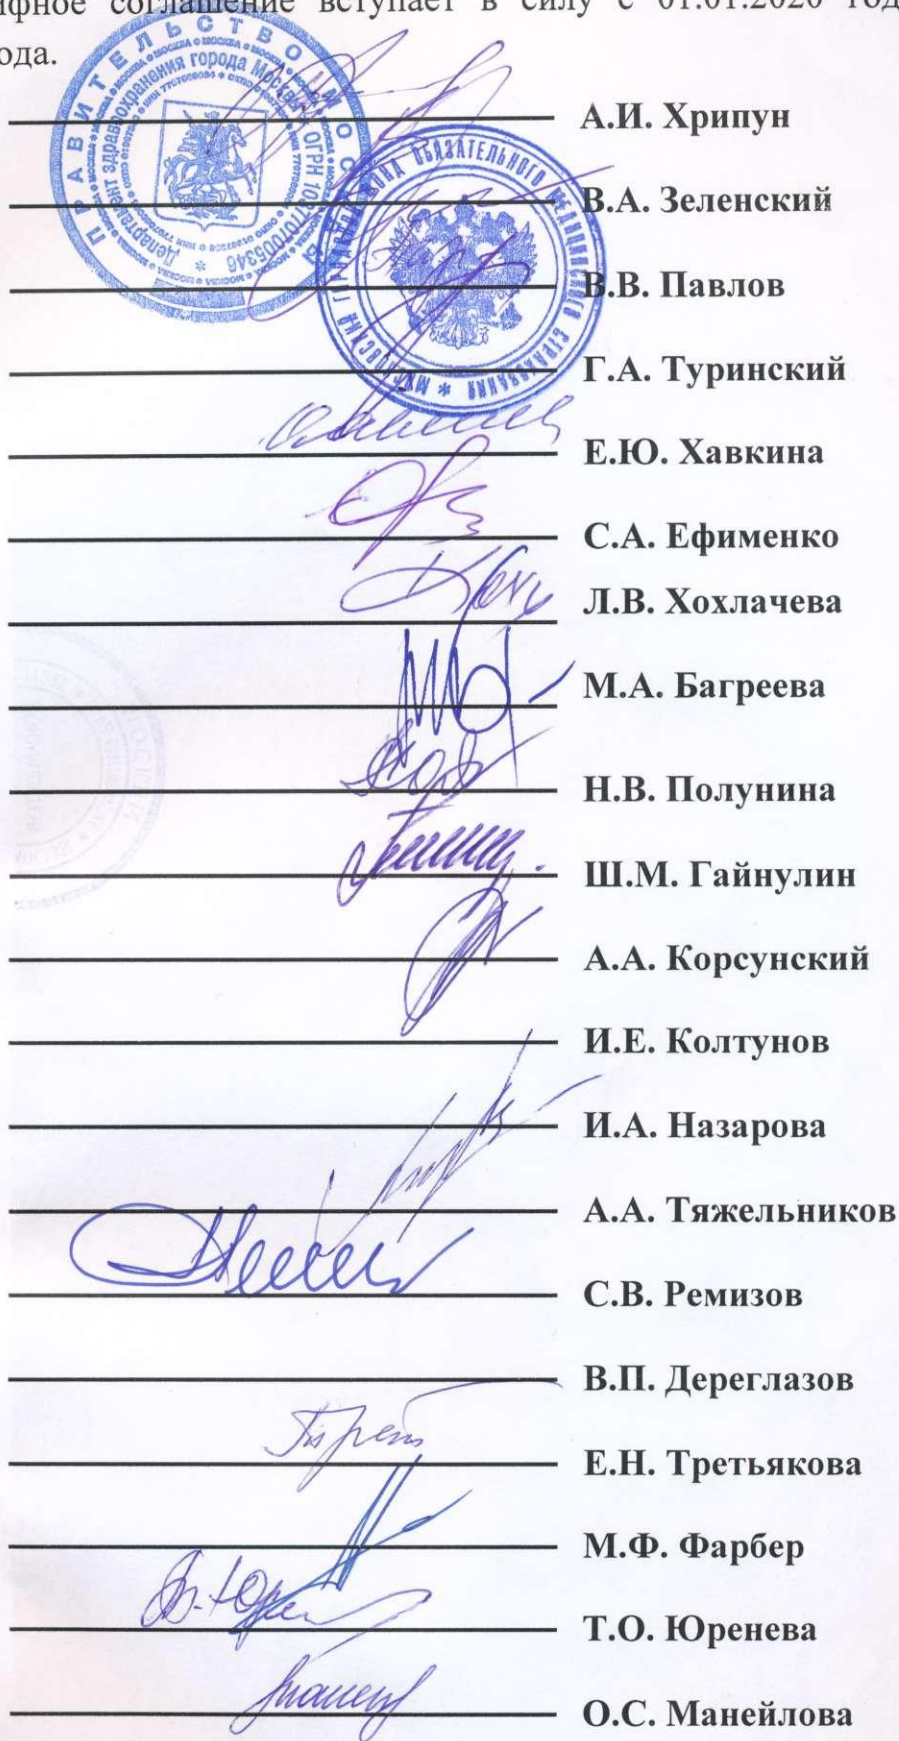 соглашение вступает в силу с 01.01.2020
ода.
ПРАВИТЕЛЬСТВО МОСКВЫ
Департамент здравоохранения города Москвы * ОГРН 1037707005346
МОСКОВСКИЙ ГОРОДСКОЙ ФОНД ОБЯЗАТЕЛЬНОГО МЕДИЦИНСКОГО СТРАХОВАНИЯ *
А.И. Хрипун
В.А. Зеленский
В.В. Павлов
Г.А. Туринский
Е.Ю. Хавкина
С.А. Ефименко
Л.В. Хохлачева
М.А. Багреева
Н.В. Полунина
Ш.М. Гайнулин
А.А. Корсунский
И.Е. Колтунов
И.А. Назарова
А.А. Тяжельников
С.В. Ремизов
В.П. Дереглазов
Е.Н. Третьякова
М.Ф. Фарбер
Т.О. Юренева
О.С. Манейлова